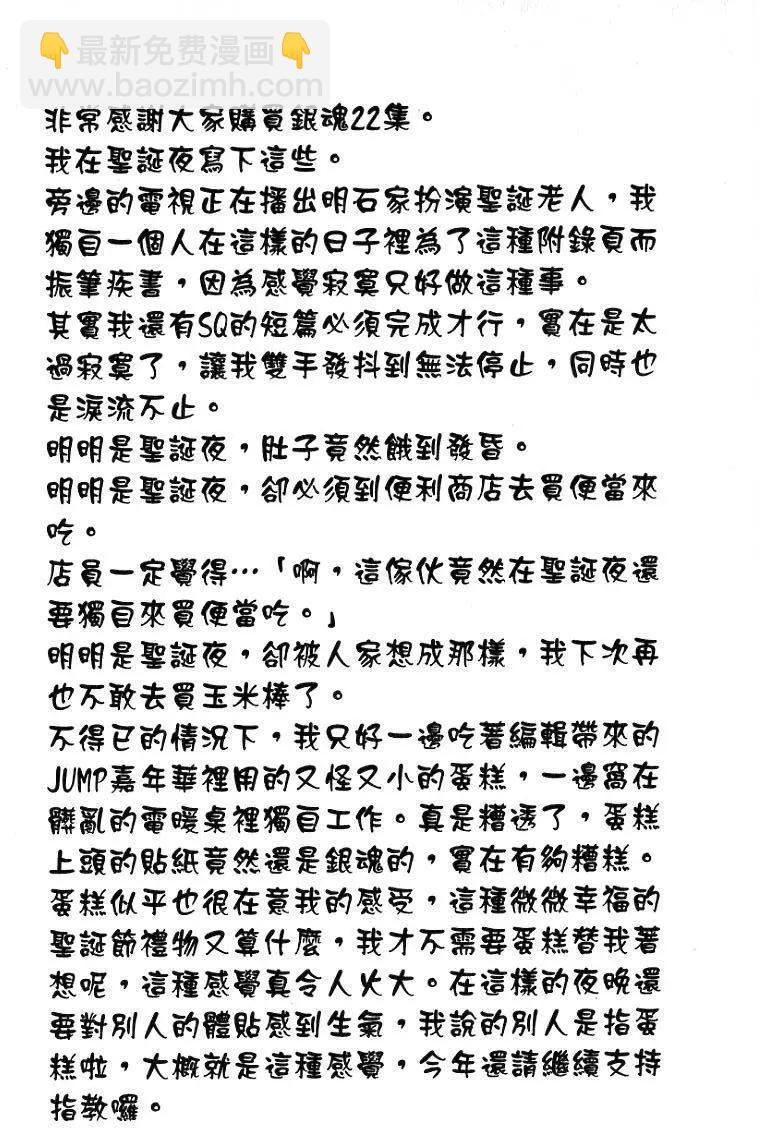 👇最新免费漫画👇
www.baozimh.com
非常感謝大家購買銀魂22集。
我在聖誕夜寫下這些。
旁邊的電視正在播出明石家扮演聖誕老人，我
獨自一個人在這樣的日子裡為了這種附錄頁而
振筆疾書，因為感覺寂寞只好做這種事。
其實我還有SQ的短篇必須完成才行，實在是太
過寂寞了，讓我雙手發抖到無法停止，同時也
是淚流不止。
明明是聖誕夜，肚子竟然餓到發昏。
明明是聖誕夜，卻必須到便利商店去買便當來
吃。
店員一定覺得…「啊，這傢伙竟然在聖誕夜還
要獨自來買便當吃。」
明明是聖誕夜，卻被人家想成那樣，我下次再
也不敢去買玉米棒了。
不得已的情況下，我只好一邊吃著編輯帶來的
JUMP嘉年華裡用的又怪又小的蛋糕，一邊窩在
髒亂的電暖桌裡獨自工作。真是糟透了，蛋糕
上頭的貼紙竟然還是銀魂的，實在有夠糟糕。
蛋糕似乎也很在意我的感受，這種微微幸福的
聖誕節禮物又算什麼，我才不需要蛋糕替我著
想呢，這種感覺真令人火大。在這樣的夜晚還
要對別人的體貼感到生氣，我說的別人是指蛋
糕啦，大概就是這種感覺，今年還請繼續支持
指教囉。